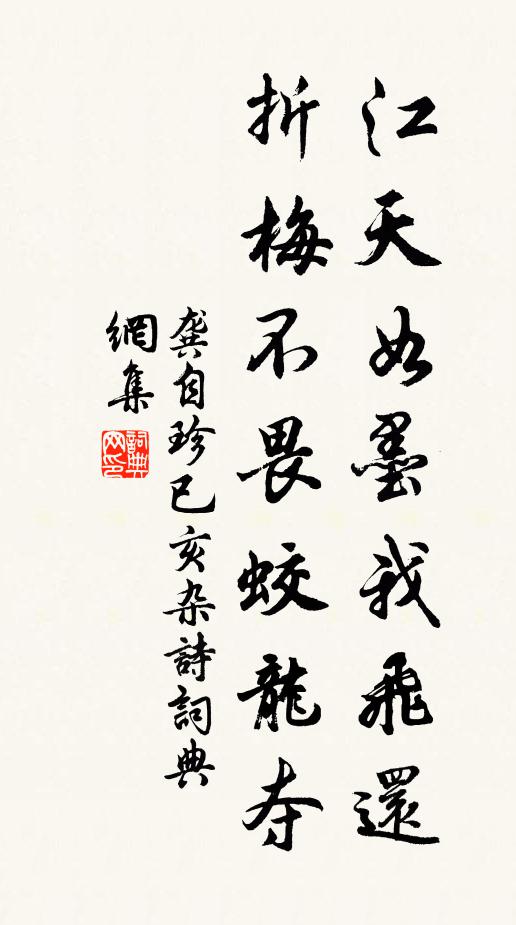 江天如墨我飛還
折梅不畏蛟龍夺
龔自珍己亥杂詩詞典
網集
詞典
网印